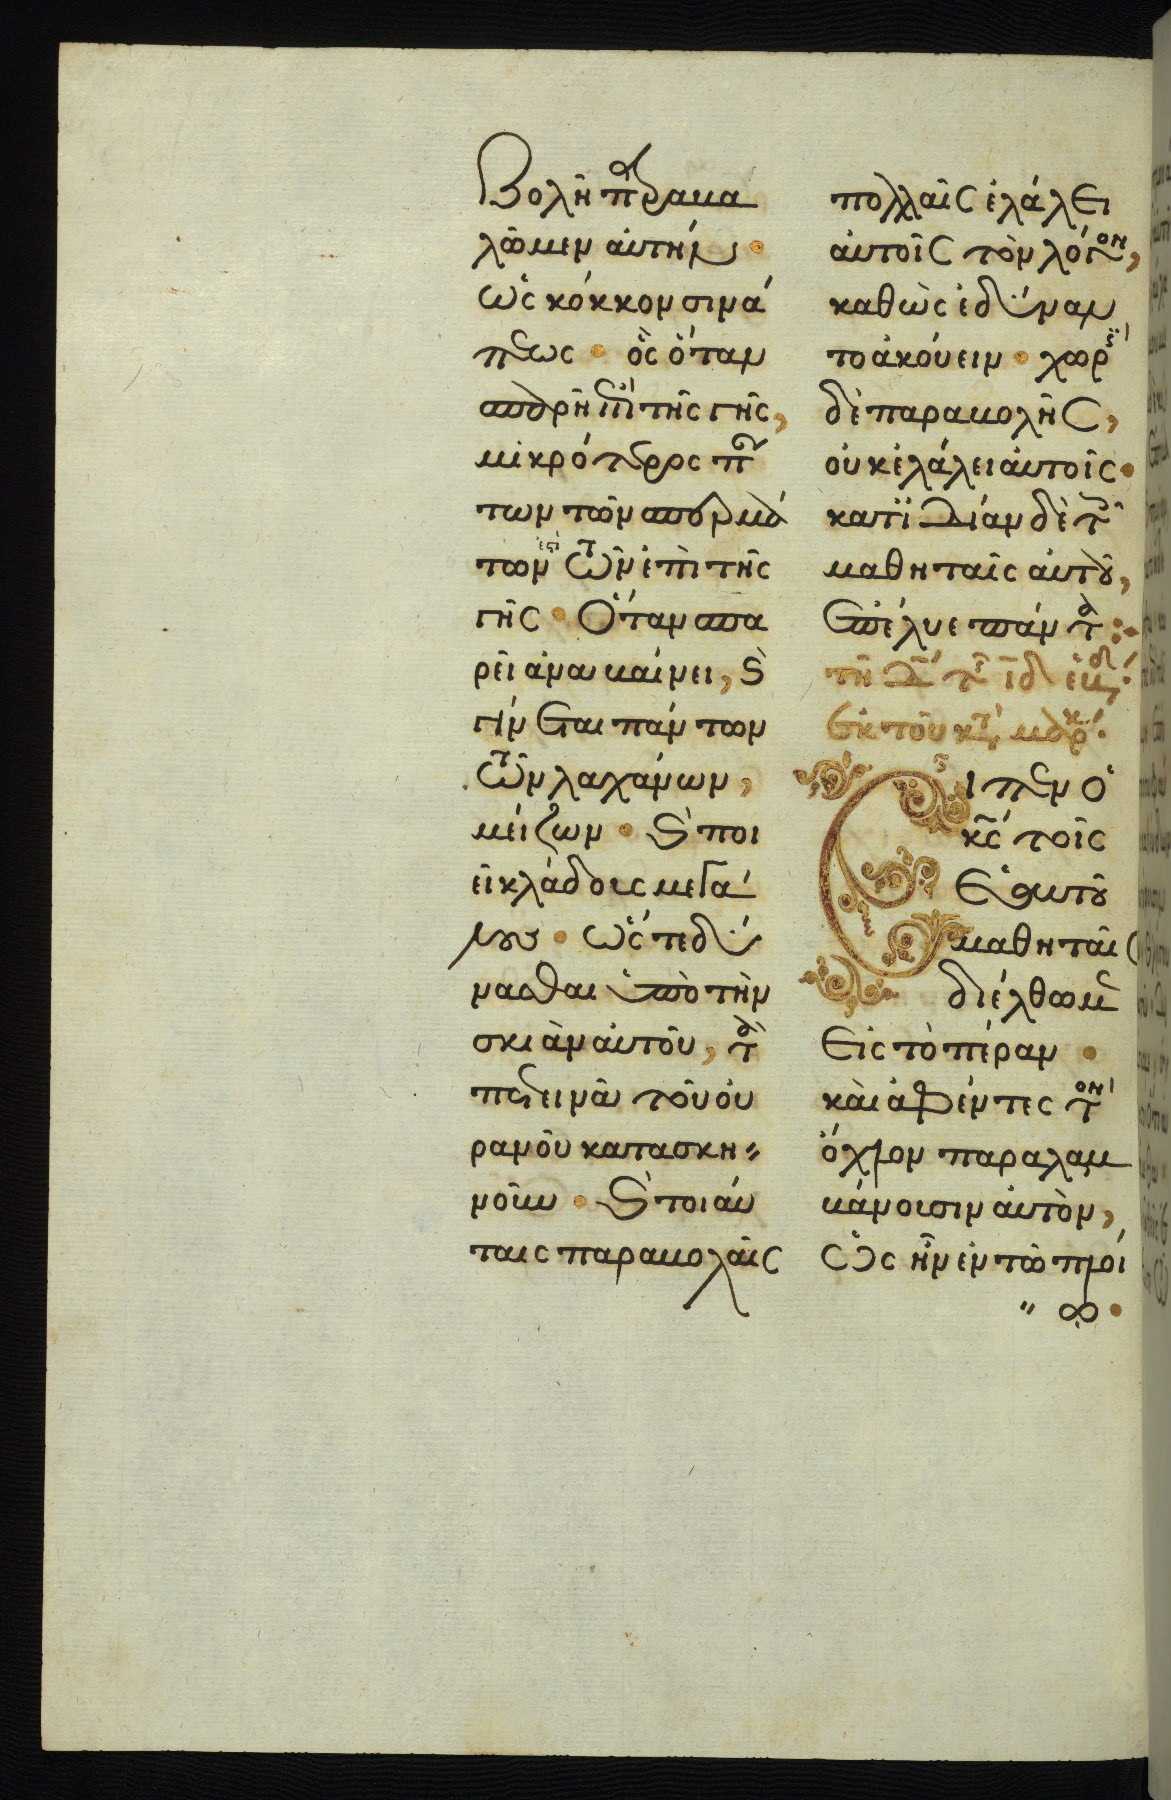 βολῇ παραβα
λῶμεν αὐτήν·
ὡς κόκκον σινά
πεως· ὃς ὅταν
σπαρῇ ἐπὶ τῆς γῆς,
μικρότερος πάν
των τῶν σπερμά
των τῶν ἐπὶ τῆς
γῆς· Ὅταν σπα
ρεῖ ἀναβαίνει, καὶ
γίνεται πάντων
τῶν λαχάνων,
μείζων· καὶ ποι
εῖ κλάδους μεγά
λους· ὥστε δύ
νασθαι ὑπὸ τὴν
σκιὰν αὐτοῦ, τὰ
πετεινὰ τοῦ οὐ
ρανοῦ κατασκη
νοῦν· καὶ τοιαύ
ταις παραβολαῖς
πολλαῖς ἐλάλει
αὐτοῖς τὸν λόγον,
καθὼς ἐδύναν
το ἀκούειν· χωρὶς
δὲ παραβολῆς,
οὐκ ἐλάλει αὐτοῖς·
κατ ϊδίαν δὲ τοῖς
μαθηταῖς αὐτοῦ,
ἐπέλυε πάντα:
τῇ Δ τῆς ιδ ἑβδ
ἐκ τοῦ κατὰ μάρκ·
Εἶπεν ὁ
κς τοῖς
ἑαυτοῦ
μαθηταῖς
διέλθωμεν
εἰς τὸ πέραν·
καὶ ἀφέντες τὸν
ὄχλον παραλαμ
βάνουσιν αὐτὸν,
ὡς ἦν ἐν τῷ πλοί
ῳ·